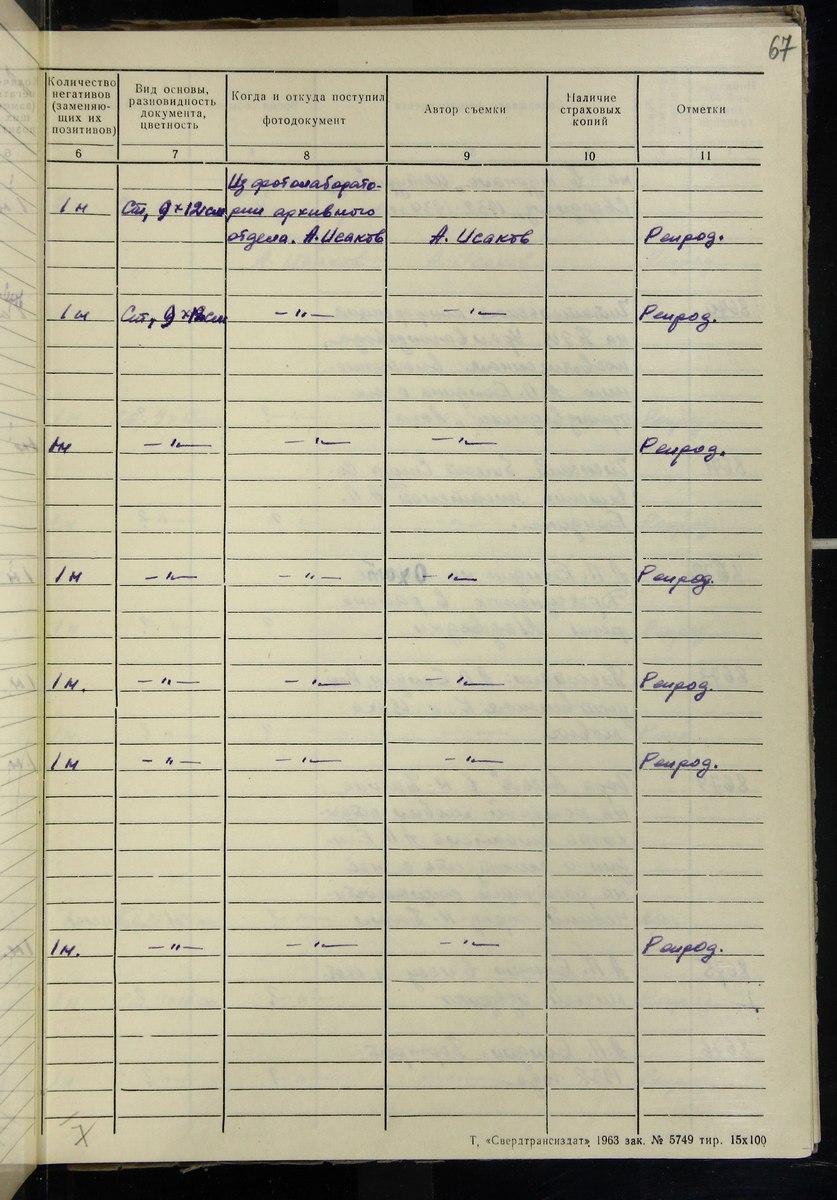 67
Количество негативов (заменяю- щих их позитивов)
Вид основы, разновидность документа, цветность
Когда и откуда поступил фотодокумент
Автор съемки
Наличие страховых копий
Отметки
6 7 8 9 10 11
Из фотолаборато-
1 н Сп, 9×12см рии архивного
отдела. А.Исаков А. Исаков Репрод.
1 н Сп, 9×12см — " — — " — Репрод.
1н — " — — " — — " — Репрод.
1 н — " — — " — — " — Репрод.
1 н. — " — — " — — " — Репрод.
1 н — " — — " — — " — Репрод.
1 н. — " — — " — — " — Репрод.
Т. «Свердтрансиздат», 1963 зак. № 5749 тир. 15х100